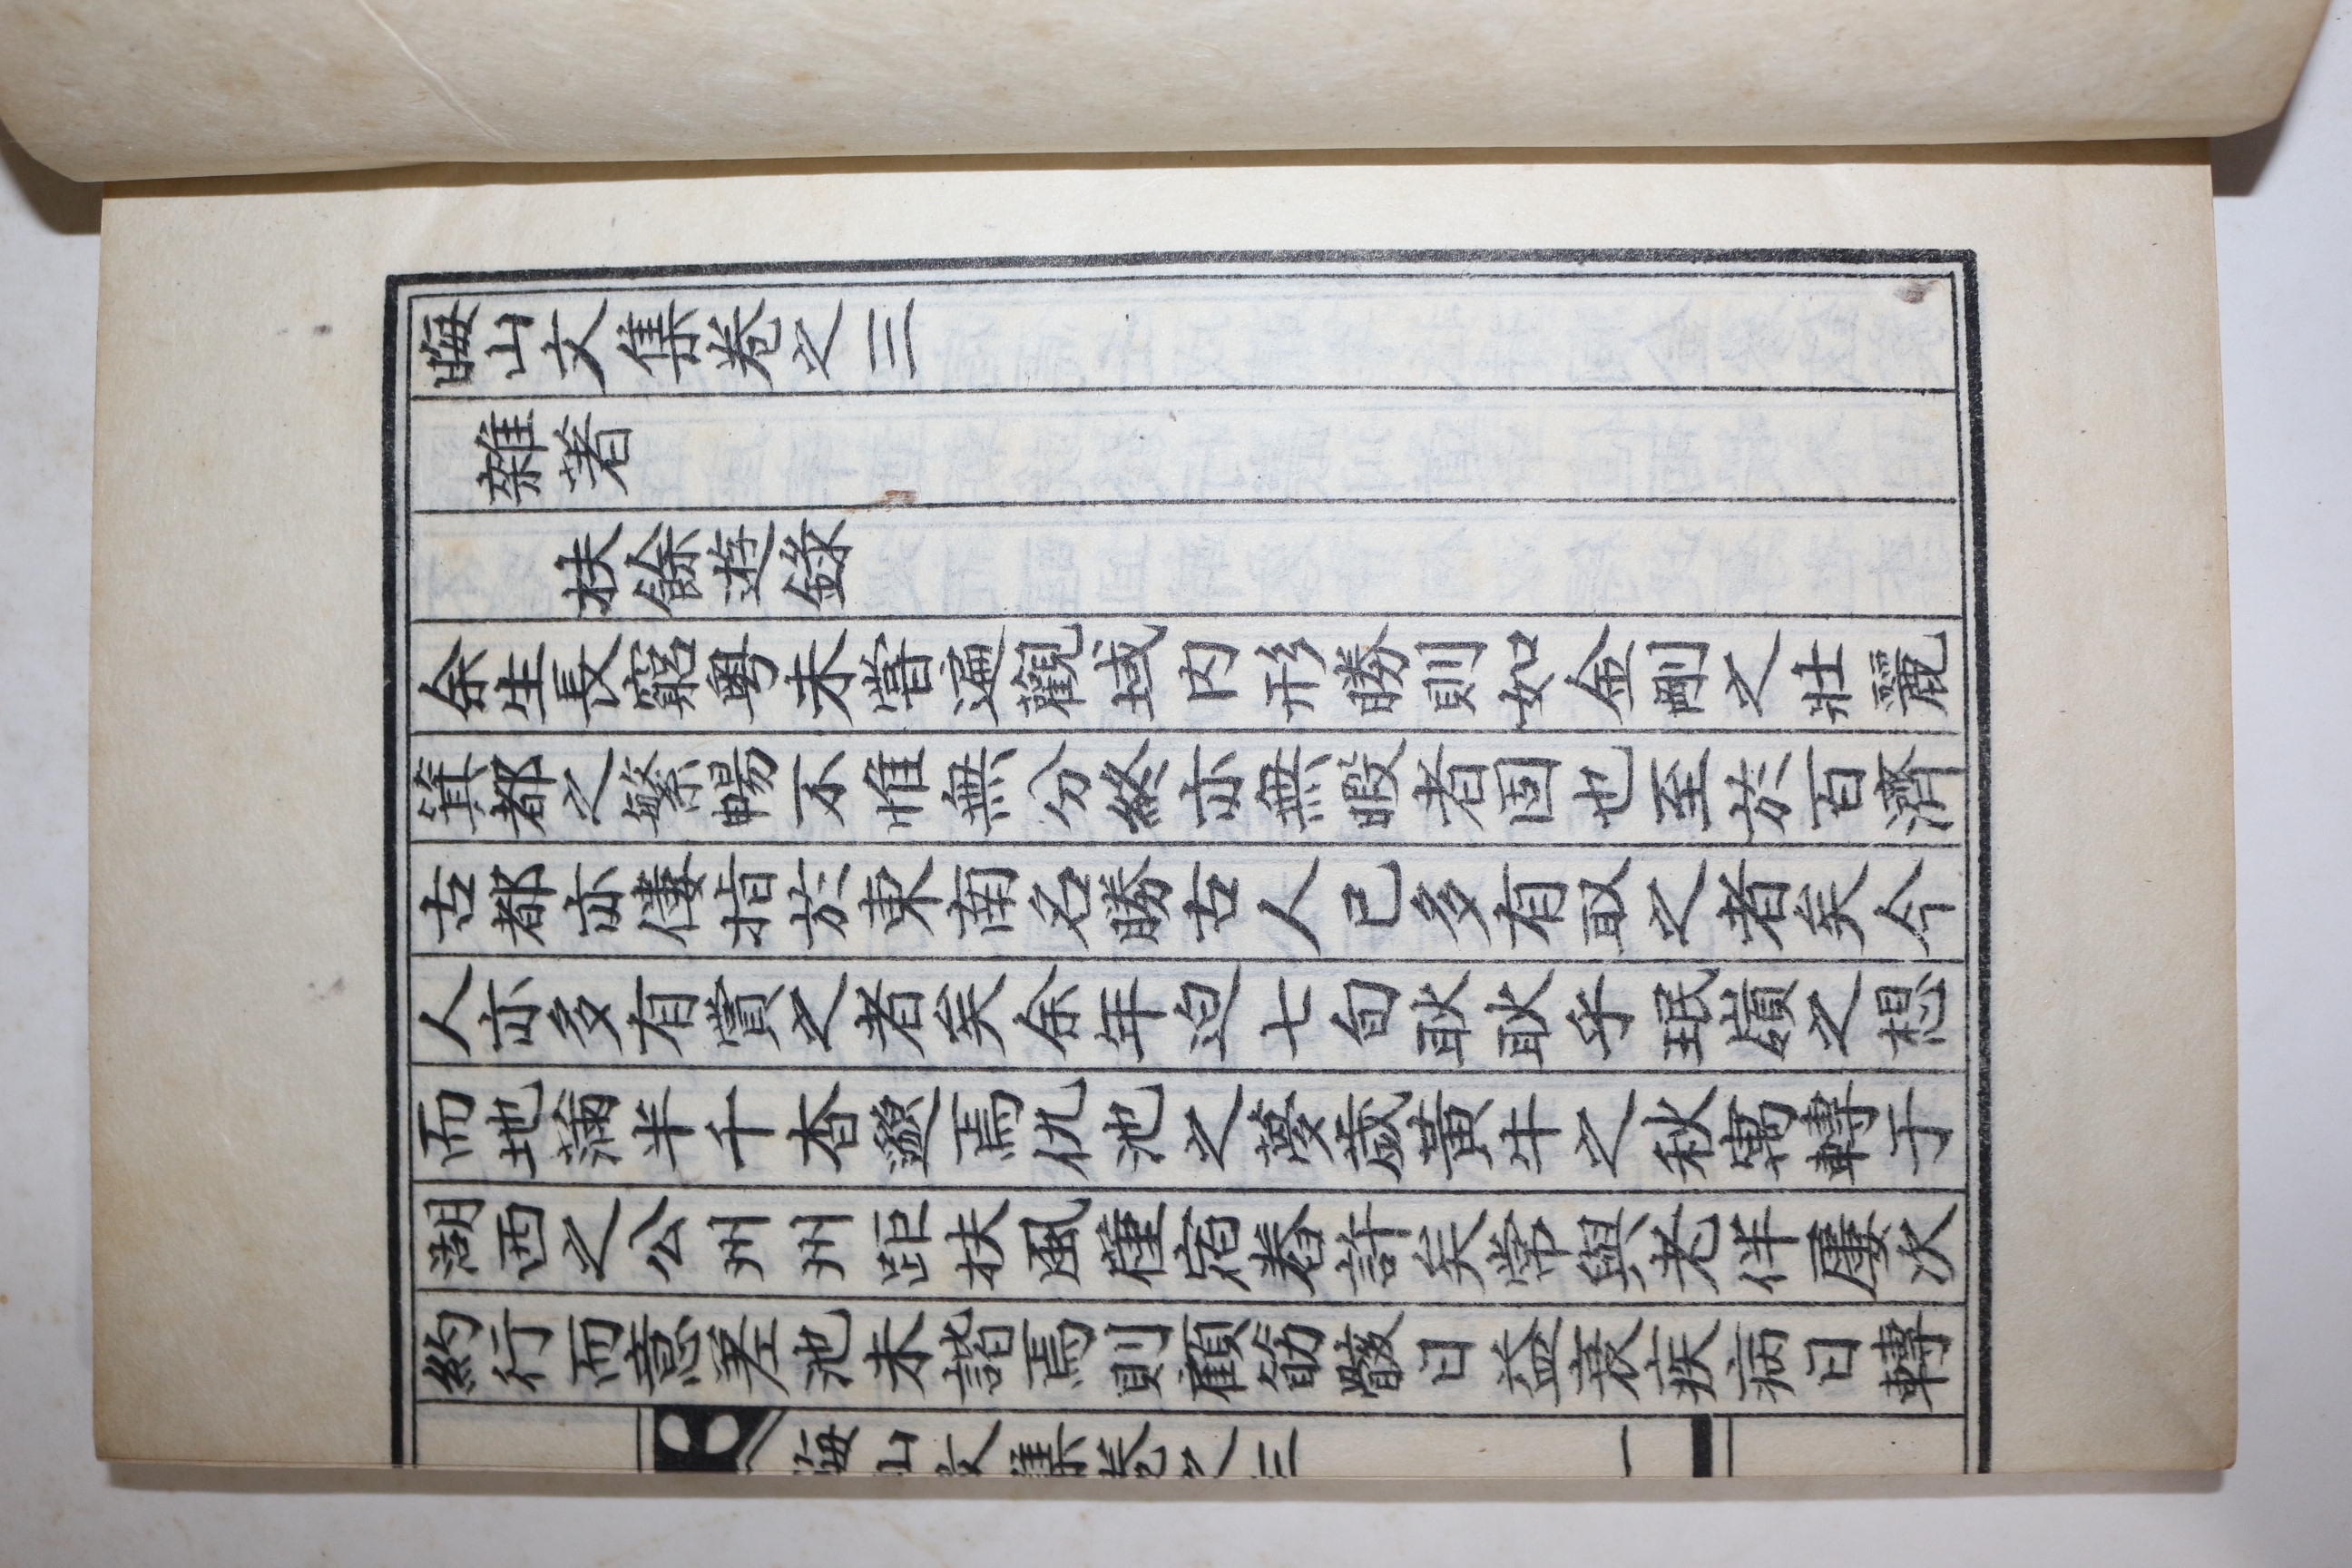 晦山文集卷之三
雜著
扶餘遊錄
余生長窮粤未嘗遍觀域内形勝則如金剛之壯麗
箕都之繁暢不惟無分終亦無暇者固也至於百濟
古都亦僂指於東南名勝古人已多有取之者矣今
人亦多有賞之者矣余年迫七旬耿耿乎珉嶺之想
而地蒲半千杳邈焉仇池之夢歲黃牛之秋寓轉于
湖西之公州州距扶風菫宿舂許矣常與老伴屢次
約行而意差池未諧焉則顧筋骸日益衰疾病日轉
晦山文集卷之三 一